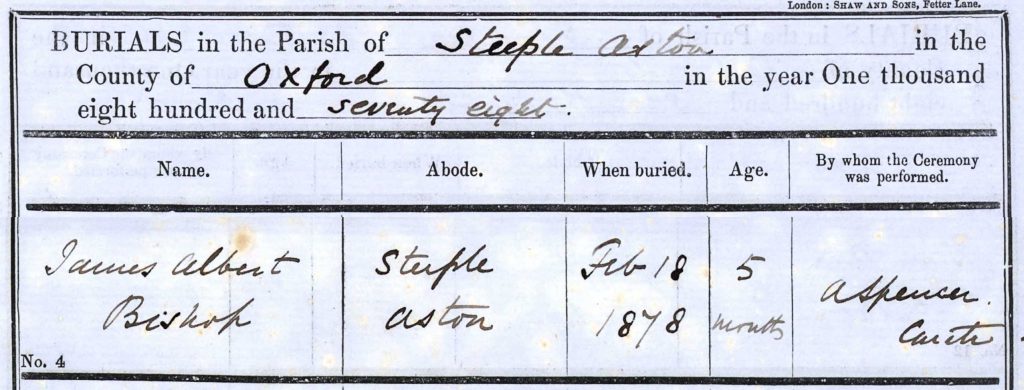 London : SHAW AND SONS, Fetter Lane.
BURIALS in the Parish of Steeple Aston in the
County of Oxford in the year One thousand
eight hundred and seventy eight.
Name. Abode. When buried. Age. By whom the Ceremony was performed.
James Albert Steeple Feb 18 5
Bishop Aston 1878 months
A Spencer.
Curate
No. 4